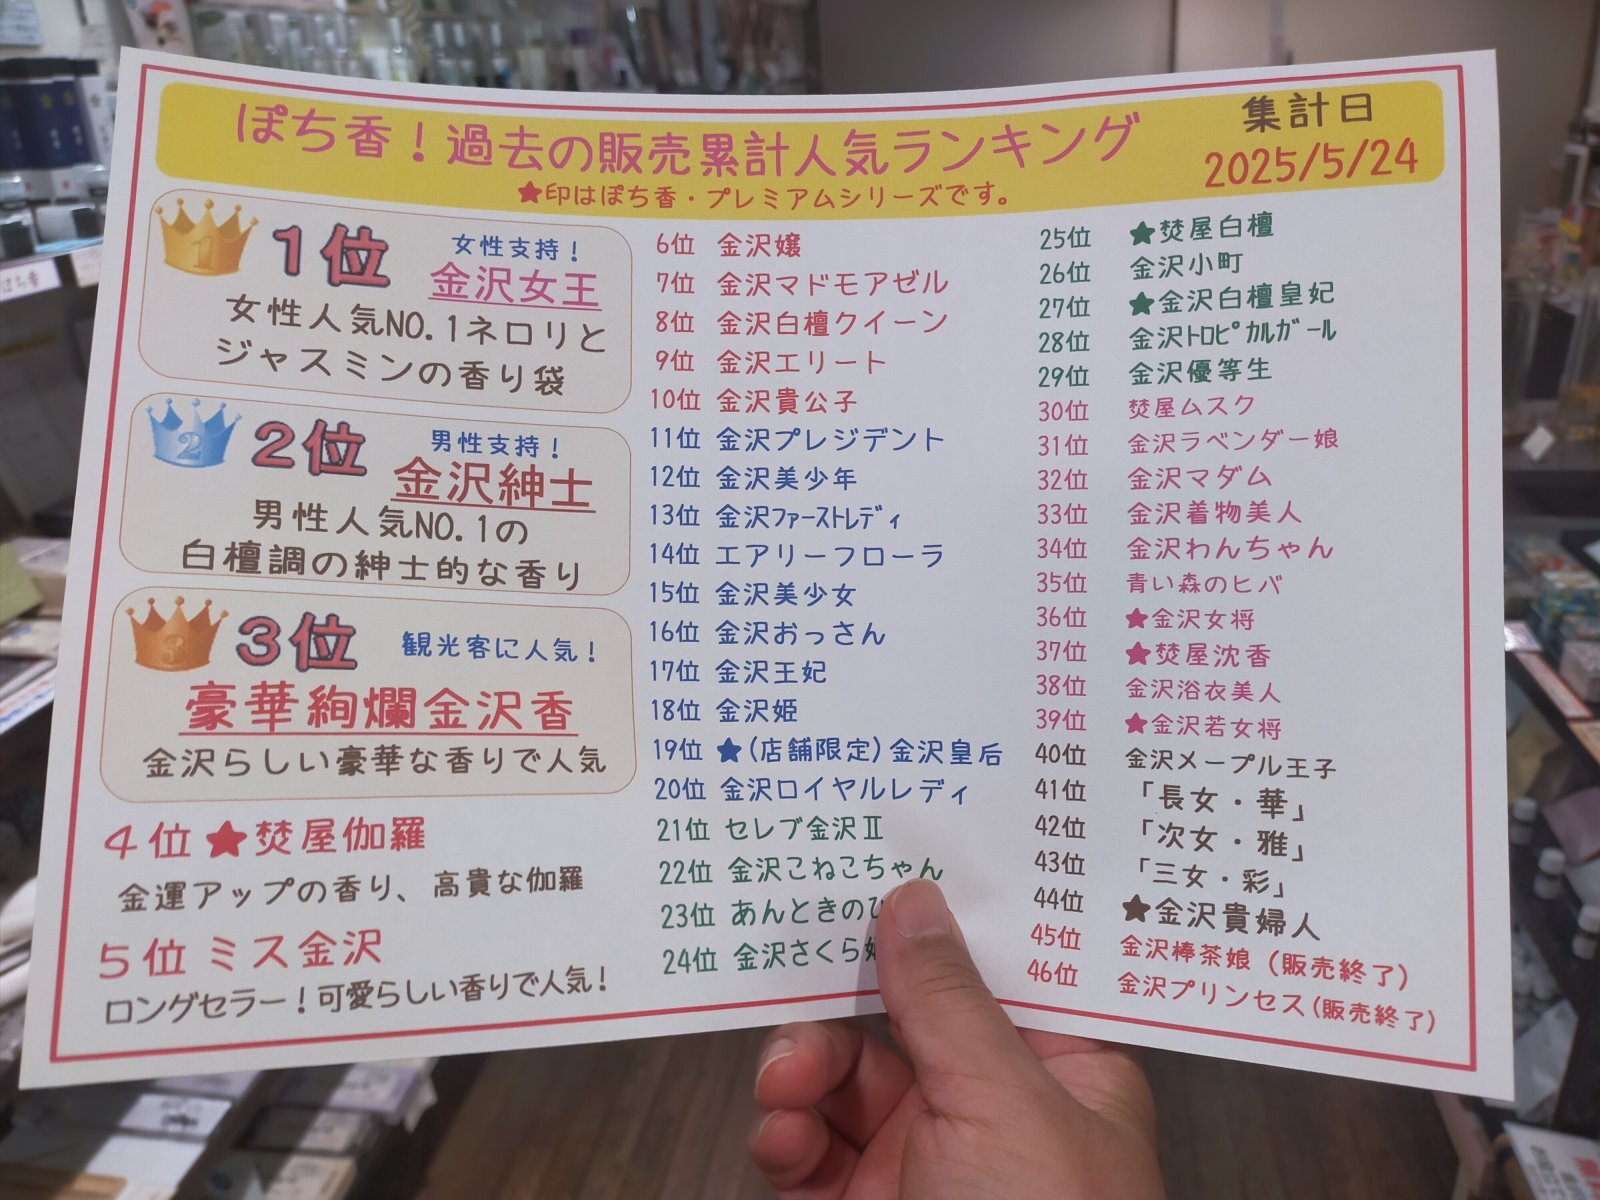 ぽち香！過去の販売累計人気ランキング
★印はぽち香・プレミアムシリーズです。
集計日
2025/5/24
1
1位
女性支持！
金沢女王
女性人気NO.1ネロリと
ジャスミンの香り袋
2
2位
男性支持！
金沢紳士
男性人気NO.1の
白檀調の紳士的な香り
3
3位
観光客に人気！
豪華絢爛金沢香
金沢らしい豪華な香りで人気
4位 ★焚屋伽羅
金運アップの香り、高貴な伽羅
5位 ミス金沢
ロングセラー！可愛らしい香りで人気！
6位 金沢嬢
7位 金沢マドモアゼル
8位 金沢白檀クイーン
9位 金沢エリート
10位 金沢貴公子
11位 金沢プレジデント
12位 金沢美少年
13位 金沢ﾌｧｰｽﾄﾚﾃﾞｨ
14位 エアリーフローラ
15位 金沢美少女
16位 金沢おっさん
17位 金沢王妃
18位 金沢姫
19位 ★(店舗限定)金沢皇后
20位 金沢ロイヤルレディ
21位 セレブ金沢Ⅱ
22位 金沢こねこちゃん
23位 あんときの
24位 金沢さくら
25位 ★焚屋白檀
26位 金沢小町
27位 ★金沢白檀皇妃
28位 金沢ﾄﾛﾋﾟｶﾙｶﾞｰﾙ
29位 金沢優等生
30位 焚屋ムスク
31位 金沢ラベンダー娘
32位 金沢マダム
33位 金沢着物美人
34位 金沢わんちゃん
35位 青い森のヒバ
36位 ★金沢女将
37位 ★焚屋沈香
38位 金沢浴衣美人
39位 ★金沢若女将
40位 金沢メープル王子
41位 「長女・華」
42位 「次女・雅」
43位 「三女・彩」
44位 ★金沢貴婦人
45位 金沢棒茶娘（販売終了）
46位 金沢プリンセス(販売終了)